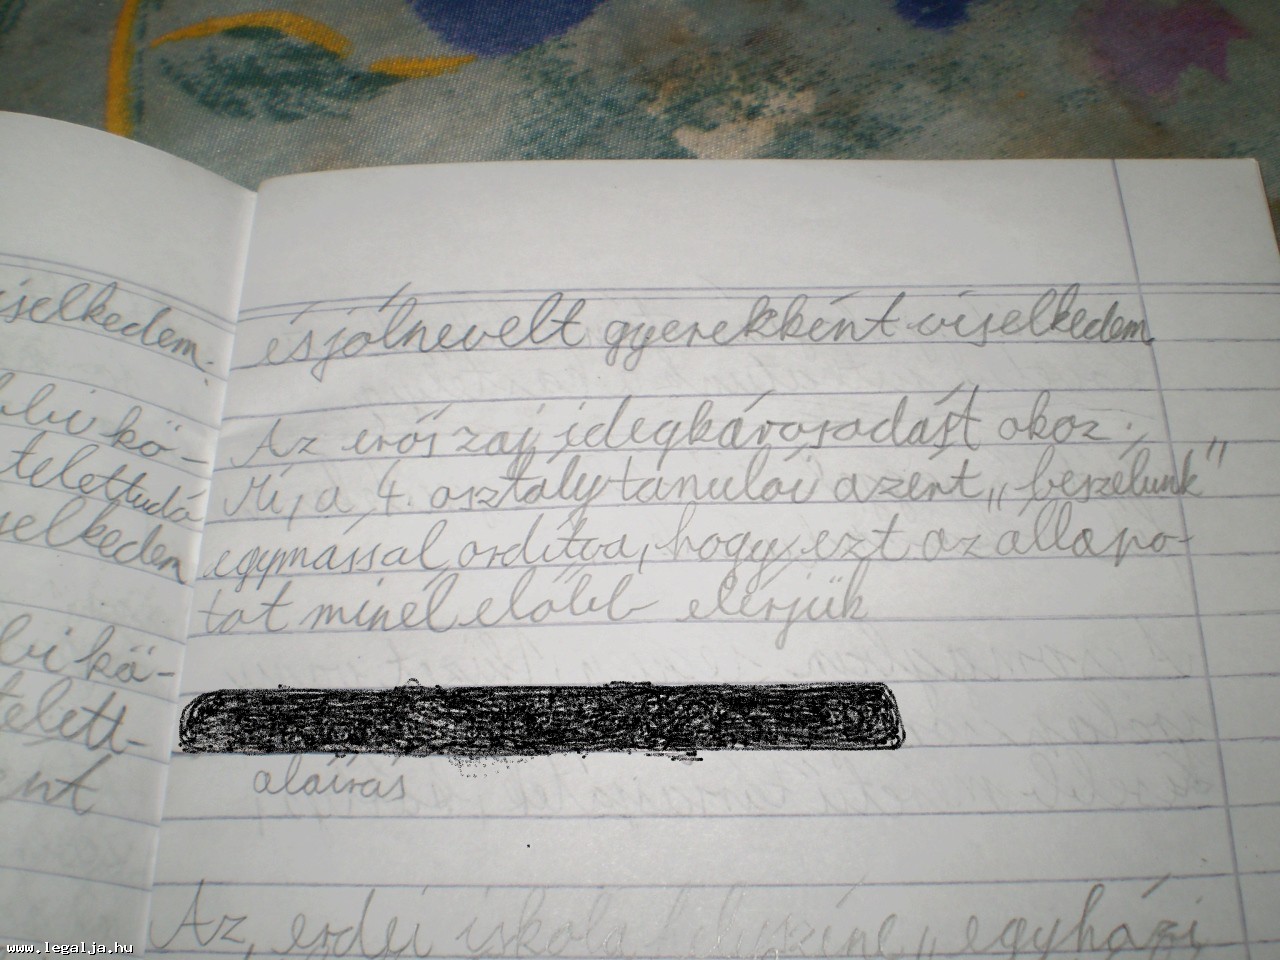 iselkedem.
bbi kö-
telettudó
selkedem
bbi kö-
telett-
ént
és jólnevelt gyerekként viselkedem.
Az erős zaj idegkárosodást okoz.
Mi, a 4. osztály tanulói azért „beszélünk"
egymással ordítva, hogy ezt az állapo-
tot minél előbb elérjük
aláírás
Az erdei iskola helyszíne „egyházi
www.legalja.hu